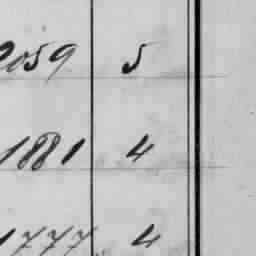 2059 5
1881 4
1777 4